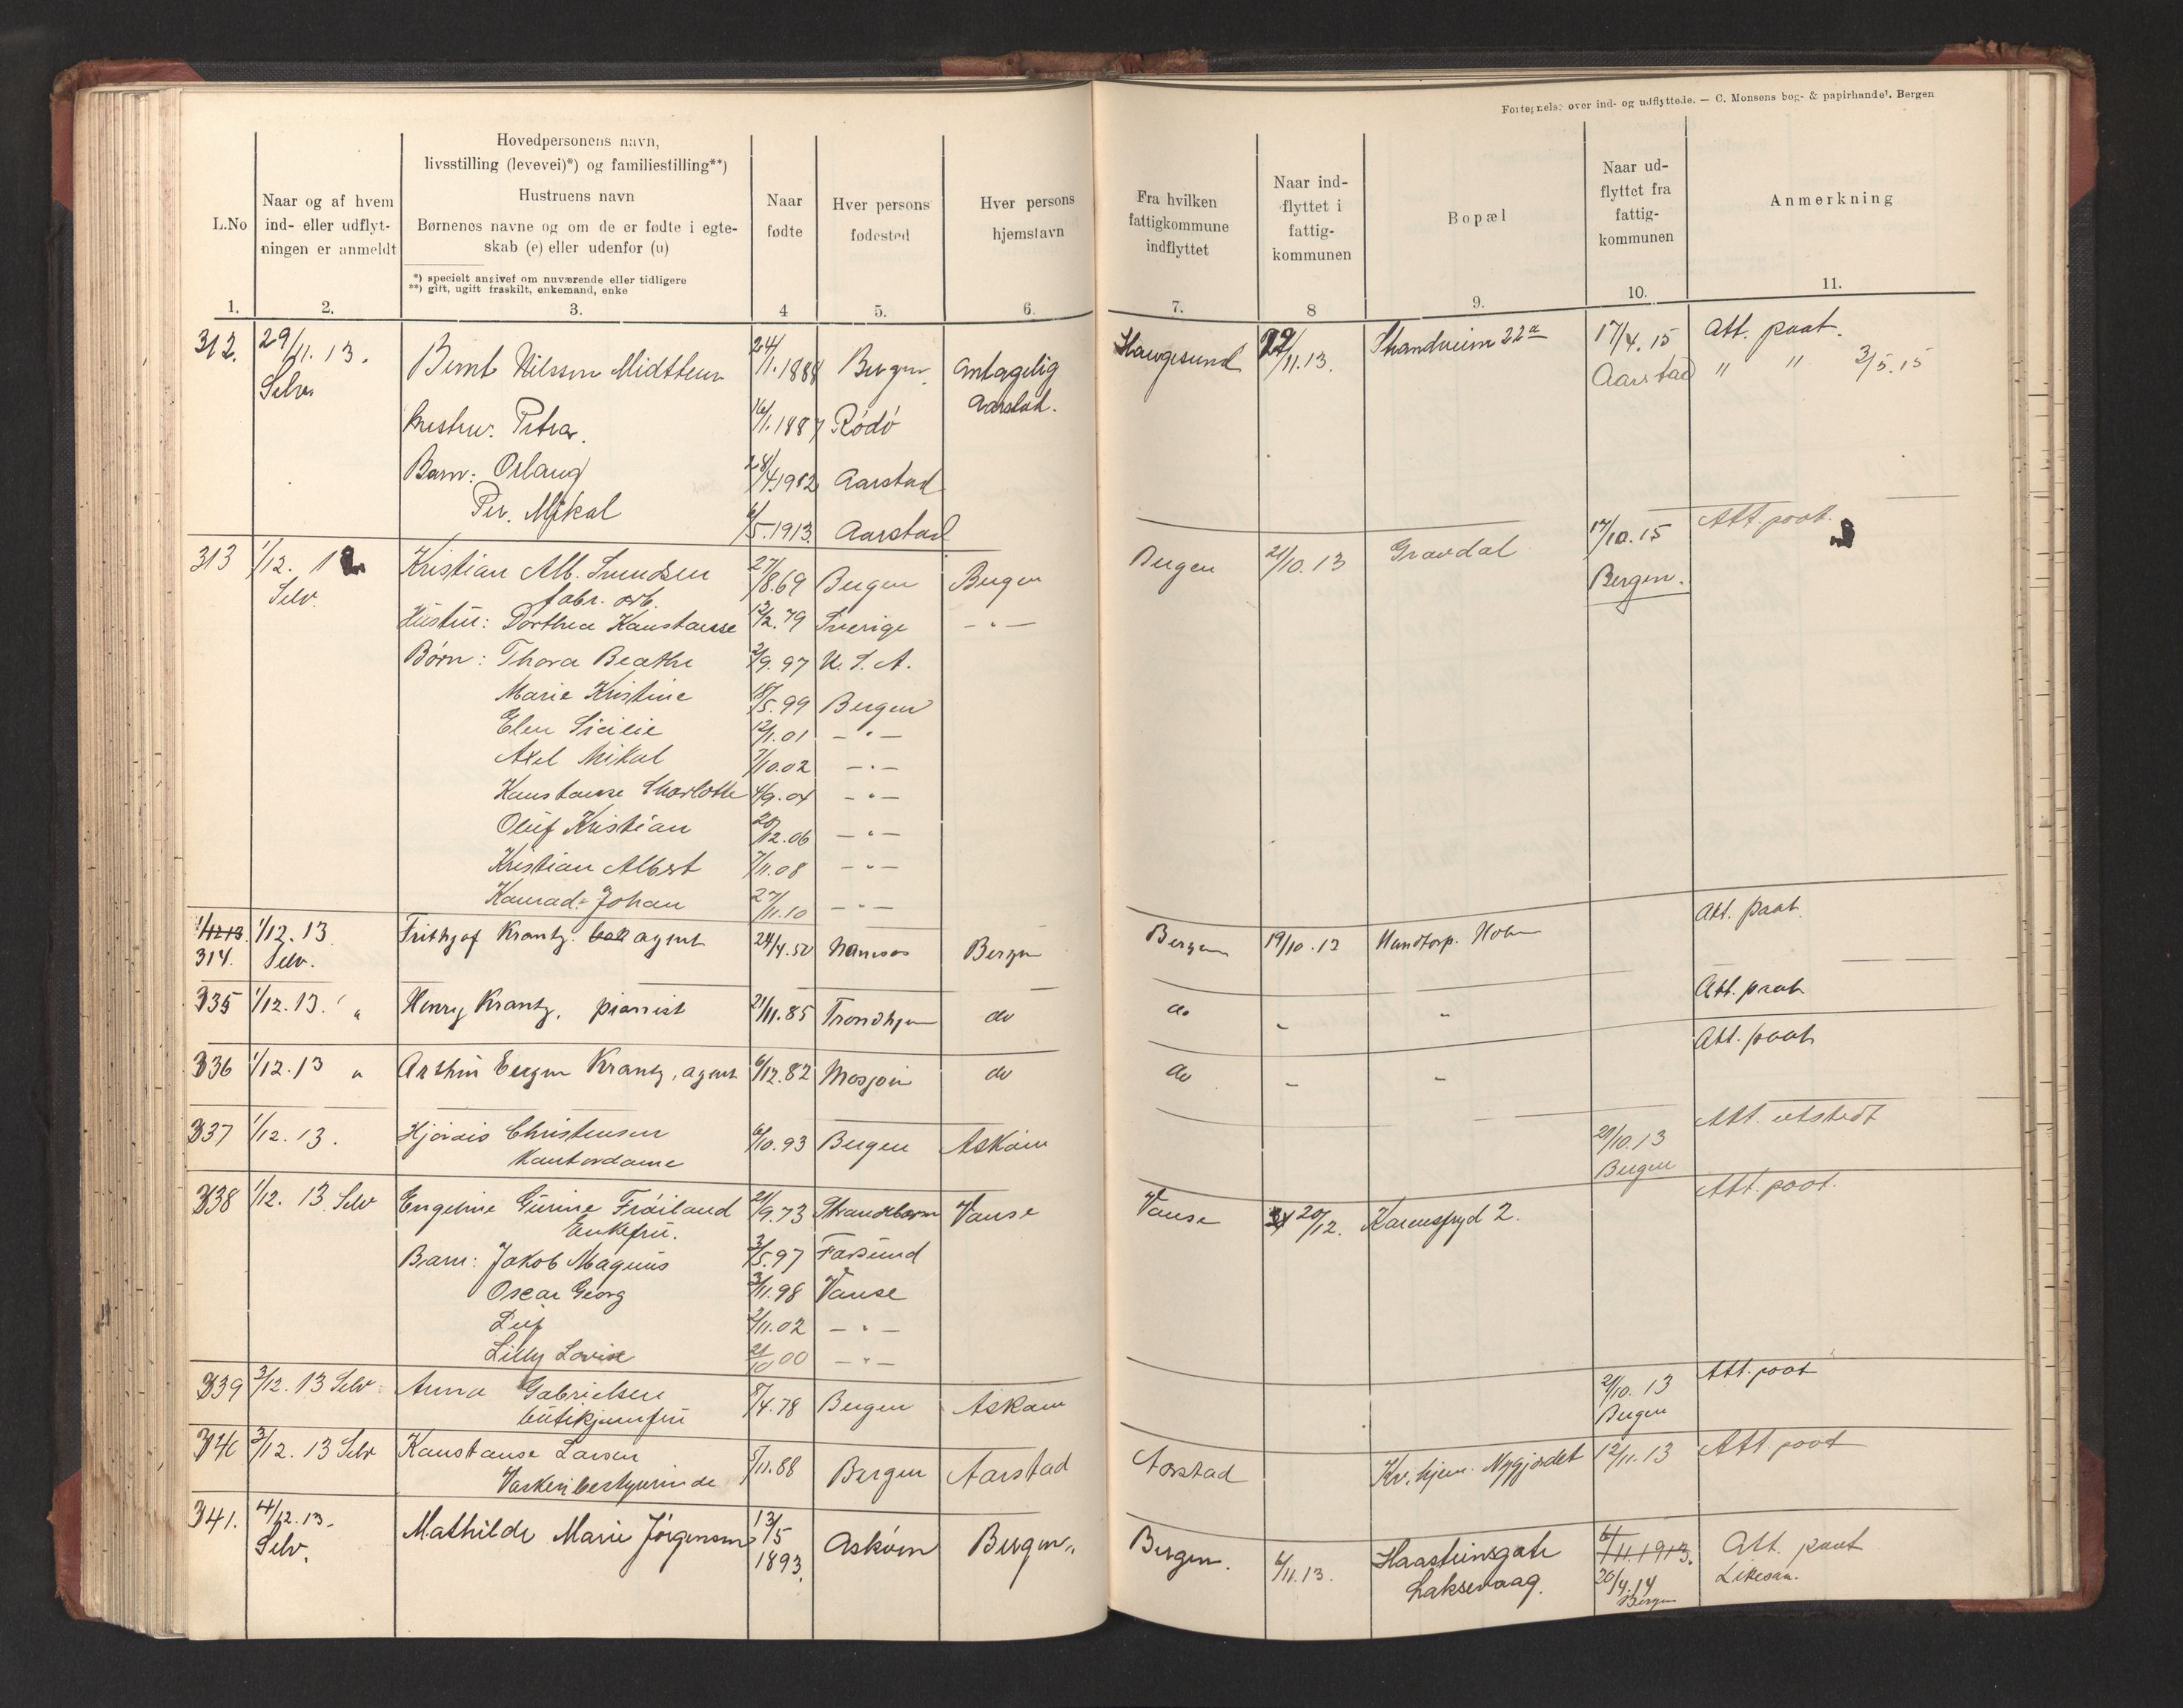 Fortegnelse over ind- og udflyttede. — C. Monsens bog- & papirhandel. Bergen
L.No
Naar og af hvem ind- eller udflyt- ningen er anmeldt
Hovedpersonens navn,
livsstilling (levevei)*) og familiestilling**)
Hustruens navn
Børnenes navne og om de er fødte i egte-
skab (e) eller udenfor (u)
*) specielt angivet om nuværende eller tidligere
**) gift, ugift fraskilt, enkemand, enke
Naar fødte
Hver persons fødested
Hver persons hjemstavn
Fra hvilken fattigkommune indflyttet
Naar ind- flyttet i fattig- kommunen
Bopæl
Naar ud- flyttet fra fattig- kommunen
Anmerkning
1. 2. 3. 4 5. 6. 7. 8 9. 10. 11.
312. 29/11.13. Bernt Nilssen Midttun 24/11.1888 Bergen Antagelig Haugesund 22/11.13. Strandveien 22a 17/4.15 Att. paat.
Selv Aarstad. Aarstad " " 3/5.15
Hustru. Petra. 16/1.1887 Rödö
Barn: Oslaug 28/4.1912 Aarstad
Per. Mikal 6/5.1913. Aarstad
313 1/12. 1 Kristian Alb. Svendsen 27/8.69 Bergen Bergen Bergen 21/10.13 Gravdal 17/10.15 Att. paat.
Selv. fabr. arb. Bergen.
Hustru: Dorthea Kanstanse 13/2.79 Sverige — " —
Børn: Thora Beathe 2/9.97 U.S.A.
Marie Kristine 18/5.99 Bergen
Elen Sicilie 12/1.01 — " —
Axel Mikal 7/10.02 — " —
Kanstanse Charlotte 4/9.04 — " —
Oluf Kristian 20/12.06 — " —
Kristian Albert 7/11.08 — " —
Kanrad Johan 27/11.10 — " —
1/12 13. 1/12.13. Frithjof Krantz. agent 24/4.50 Namsos Bergen Bergen 19/10.13 Att. paat.
314. Selv.
335 1/12.13. " Henry Krantz, pianist 21/11.85 Trondhjem do do " " Att. paat
336 1/12.13 " Arthur Eugen Krantz, agent 6/12.82 Mosjøen do do " " Att. paat
337 1/12.13. Hjørdis Christensen 6/10.93 Bergen Askøen 29/10.13 Att. utstedt
Kantordame Bergen
338 1/12. 13. Selv Engeline Gurine Frøiland 21/9.73 Vanse Vanse 20/12. Karensfryd 2. Att. paat.
Enkefru.
Barn: Jakob Magnus 3/5.97 Farsund
Oscar Georg 3/11.98 Vanse
Leif 2/11.02 — " —
Lilly Lovise 21/10 00 — " —
339 3/12. 13 Selv. Anna Gabrielsen 8/4.78 Bergen Askøen 2/10.13 Att. paat
butikjomfru Bergen
340 3/12. 13 Selv Kanstanse Larsen 8/11.88 Bergen Aarstad Aarstad Kv. hjem. Nygjordet 12/11.13 Att paat
Vaskeribestyrerinde
341. 4/12.13. Mathilde Marie Jørgensen 13/5 1893. Askøen Bergen. Bergen. 6/11.13. Haasteinsgate 6/11.1913. Att. paat
Selv. Laksevaag. 20/4.14 Bergen